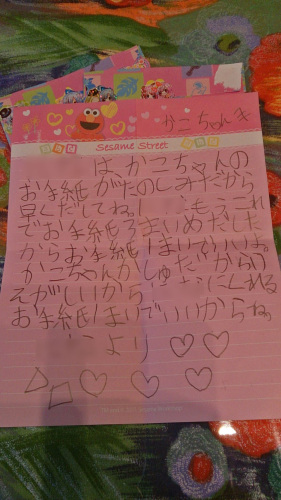 かこちゃんえ
Sesame Street
は、かこちゃんの
お手紙がたのしみだから
早くだしてね。もうこれ
でお手紙3まいめだした
からお手紙1まいでいいよ。
かこちゃんがしゅくだいからい
そがしいから にくれる
お手紙1まいでいいからね。
より♡♡
♡♡♡